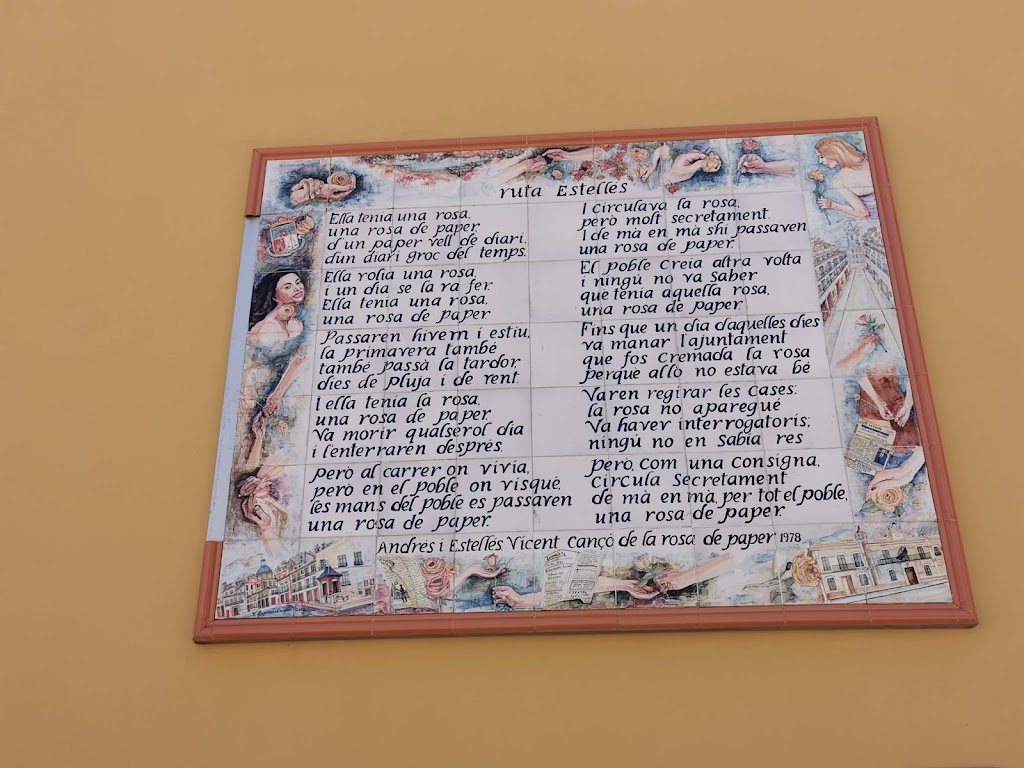 ruta Estellés
Ella tenia una rosa,
una rosa de paper,
d'un paper vell de diari,
d'un diari groc del temps.
Ella volia una rosa,
i un dia se la va fer.
Ella tenia una rosa,
una rosa de paper
Passaren hivern i estiu,
la primavera també
també passà la tardor,
dies de pluja i de vent.
I ella tenia la rosa,
una rosa de paper.
Va morir qualsevol dia
i l'enterraren després.
però al carrer on vivia,
però en el poble on visqué,
les mans del poble es passaven
una rosa de paper.
I circulava la rosa,
però molt secretament.
I de mà en mà s'hi passaven
una rosa de paper.
El poble creia altra volta
i ningú no va saber
què tenia aquella rosa,
una rosa de paper.
Fins que un dia d'aquelles dies
va manar l'ajuntament
que fos cremada la rosa
perquè allò no estava bé
Varen regirar les cases:
la rosa no aparegué
Va haver interrogatoris;
ningú no en sabia res
però, com una consigna,
circula secretament
de mà en mà, per tot el poble,
una rosa de paper.
Andrés i Estellés Vicent Cançó de la rosa de paper 1978